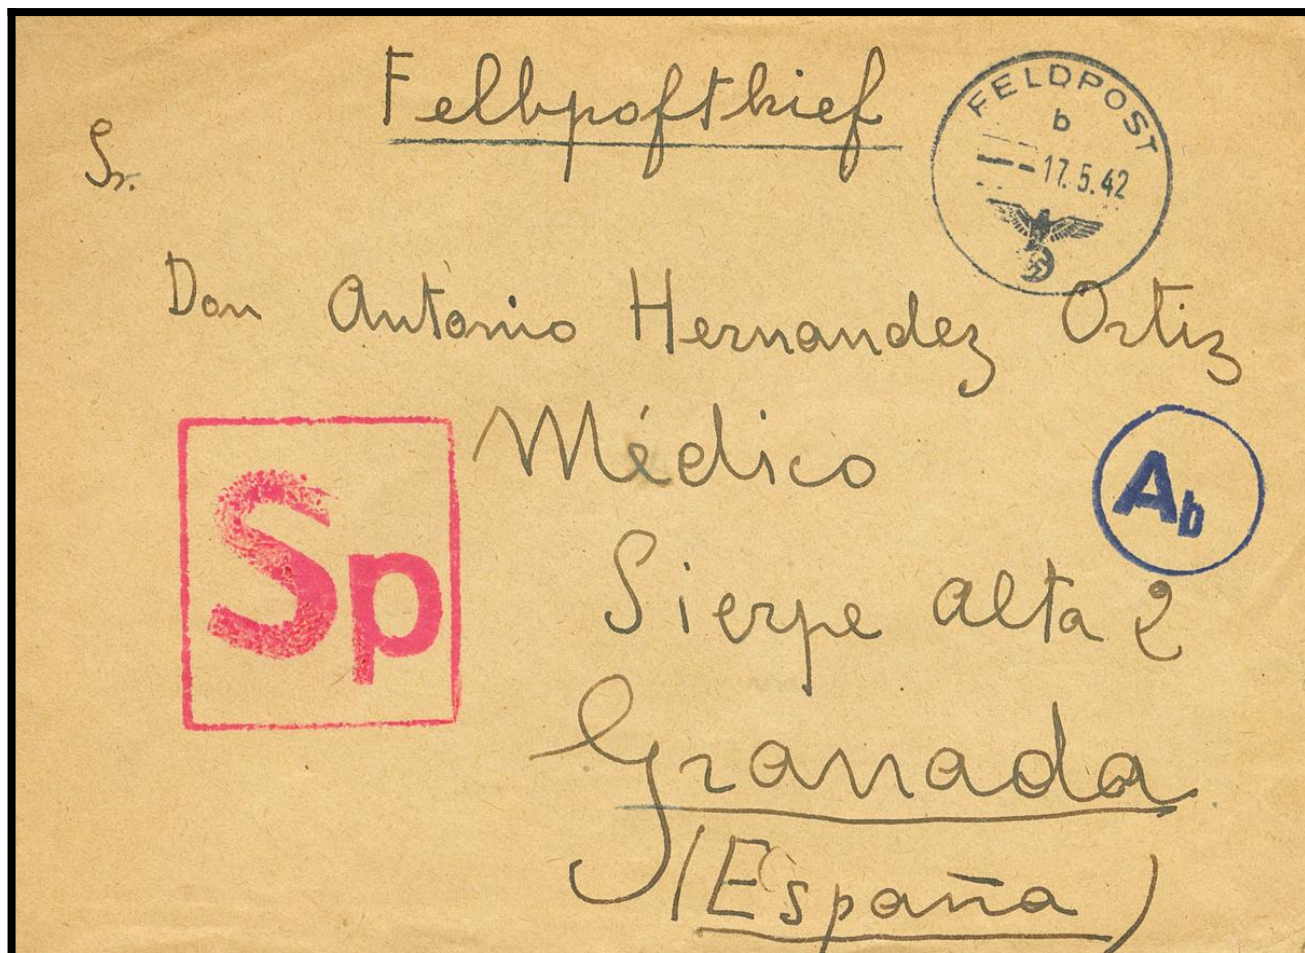 Felbpostbrief
FELDPOST
b
17.5.42
Sr.
Don Antonio Hernandez Ortiz
Médico
Sp
Ab
Sierpe alta 2
Granada
(España)